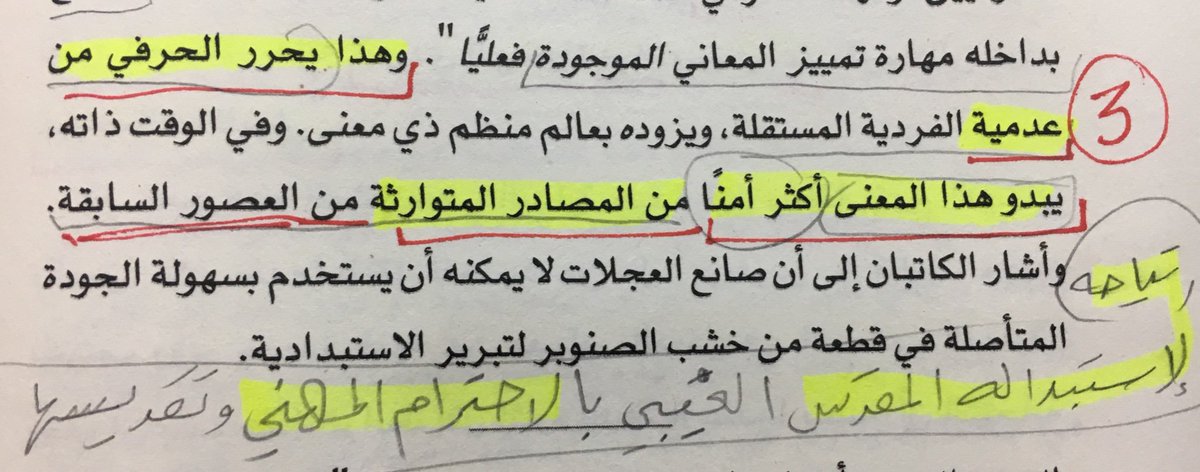 بداخله مهارة تمييز المعاني الموجودة فعليًّا". وهذا يحرر الحرفي من
3
عدمية الفردية المستقلة، ويزوده بعالم منظم ذي معنى. وفي الوقت ذاته،
يبدو هذا المعنى أكثر أمنًا من المصادر المتوارثة من العصور السابقة.
وأشار الكاتبان إلى أن صانع العجلات لا يمكنه أن يستخدم بسهولة الجودة
المتأصلة في قطعة من خشب الصنوبر لتبرير الاستبدادية.
المقدس الغيبي بالاحترام المهني وتقديسها